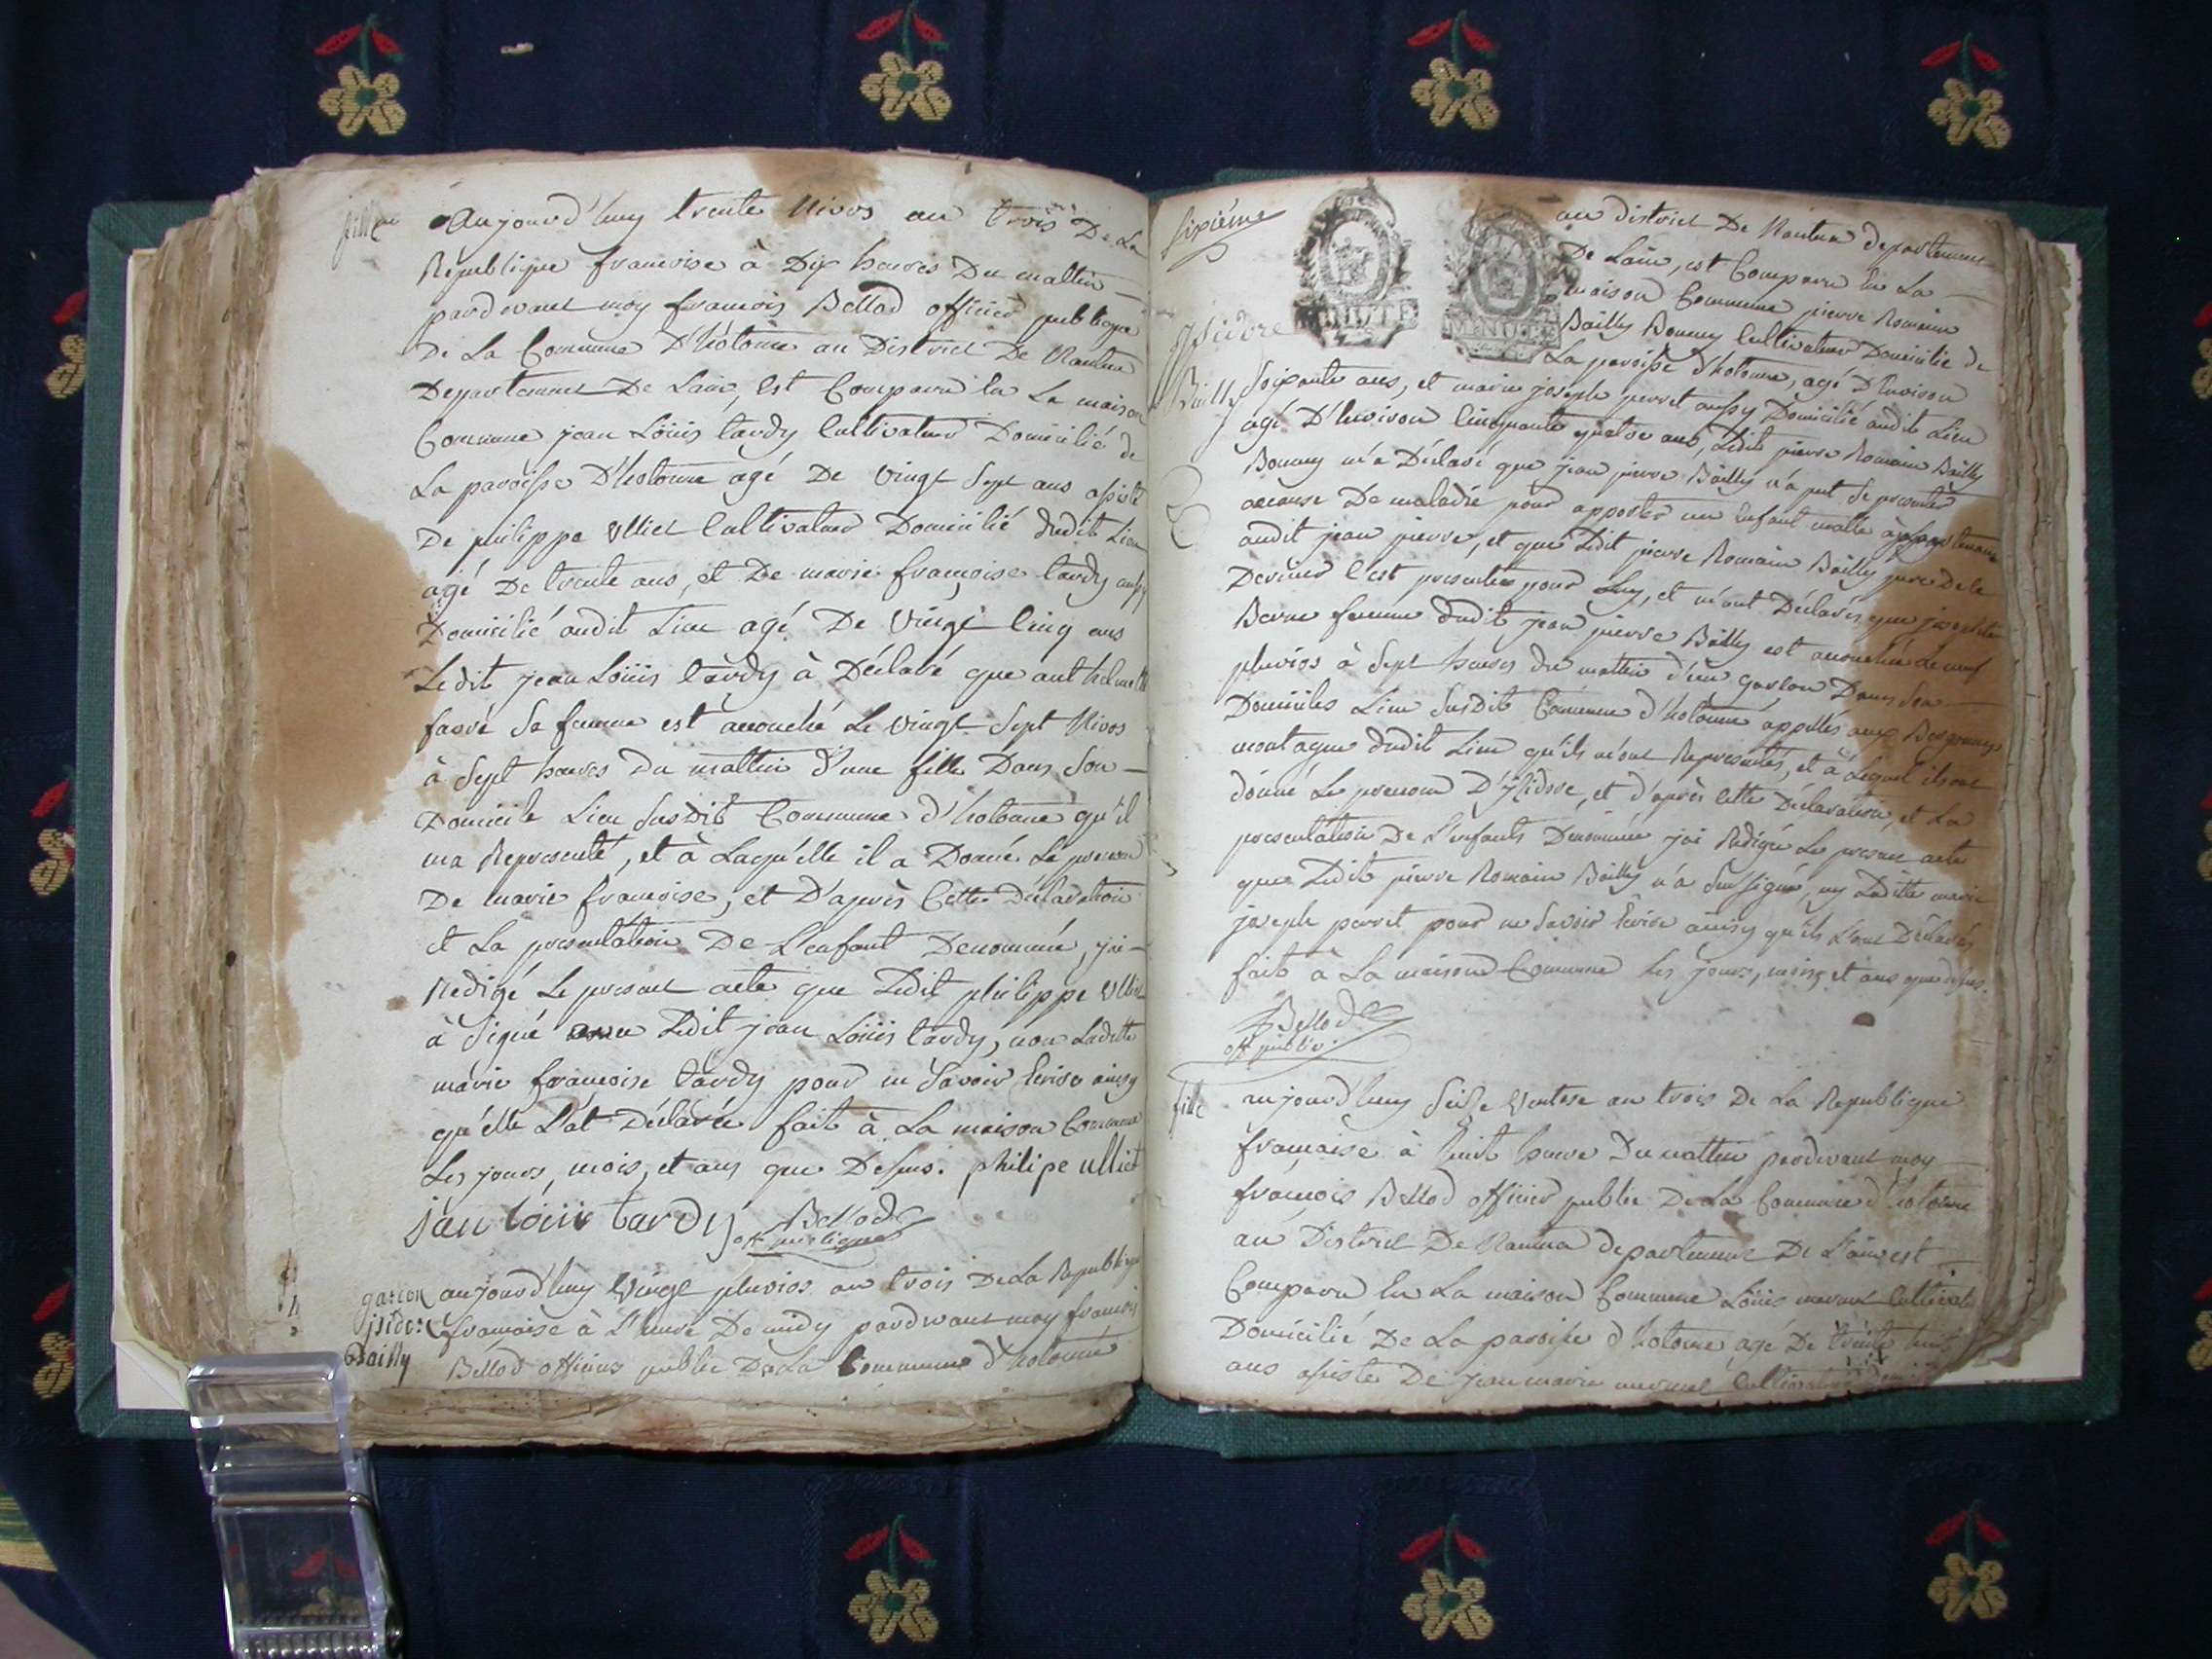 fille
Aujourd'huy trente Nivos an trois De La
Republique francoise à Dix heures Du mattin
pardevant moy francois Bellod officier publique
De La Commune D'hotonne au District De Nantua
Departement De Lain, Est Comparu En La maison
Commune jean Loüis tardy Cultivateur Domicilié de
La paroisse D'hotonne agé De vingt Sept ans assisté
De philippe Ulliet Cultivateur Domicilié dudit Lieu
agé De trente ans, et De marie françoise tardy aussy
Domicilié audit Lieu agé De vingt Cinq ans
Ledit jean Loüis tardy à Déclaré que anthelmette
favre Sa femme est acouché Le vingt Sept Nivos
à Sept heures Du mattin d'une fille Dans Son
Domicile Lieu Susdit Commune d'hotonne qu'il
ma Representé, et à Laqu'elle il a Donné Le prenom
De marie francoise, et D'après Cette Déclaration
et La presentation De L'enfant Denommé, jai
Redigé Le present acte que Ledit philippe Ulliet
à Signé avec Ledit jean Loüis tardy, non Laditte
marie francoise tardy pour ne Savoir Ecrire ainsy
qu'elle L'at Déclarée fait à La maison Commune
Les jours, mois, et ans que Dessus. philipe ulliet
jan loüis tardy Bellod
off publique
garcon
isidore
Bailly
aujourd'huy vingt pluvios an trois De La Republique
francaise à L'heure De midy pardevant moy francois
Bellod officier public De La Commune d'hotonne
Sixième
MINUTE
MINUTE
au District De Nantua departement
De Lain, est Comparu En La
maison Commune pierre Romain
Bailly Bonney Cultivateur Domicilié de
La paroisse d'hotonne, agé D'Environ
ysidore
Bailly
Soixante ans, et marie joseph perret aussy Domicilié audit Lieu
agé D'Environ Cinquante quatre ans, Ledit pierre Romain Bailly
Bonney m'a Déclaré que jean pierre Bailly n'a put Se presenter
acause De maladie pour apporter un Enfant malle appartenant
audit jean pierre, et que Ledit pierre Romain Bailly pere De le
Dernier C'est presenter pour Luy, et m'ont Déclarés que
Berne femme dudit jean pierre Bailly est acouchée Le neuf
pluvios à Sept heures du mattin d'un garcon Dans Son
Domiciles Lieu Susdit Commune d'hotonne appelles aux
montagne dudit Lieu qu'ils m'ont Representés, et à Lequel ils ont
donné Le prenom D'ysidore, et d'après Cette Déclaration, et La
presentation De L'enfants Denommée jai Redigée Le present acte
que Ledit pierre Romain Bailly n'a Sousigné, ny Laditte marie
joseph perret pour ne Savoir Ecrire ainsy qu'ils L'ont Déclarés
fait à La maison Commune Les jours, mois et ans que dessus.
Bellod
off public
fille
aujourd'huy Seize Ventose an trois De La Republique
française à huit heure Du mattin pardevant moy
françois Bellod officier public De La Commune d'hotonne
au District De Nantua departement De L'ain est
Comparu En La maison Commune Loüis Cultivateur
Domicilié De La paroisse d'hotonne agé De trente huit
ans assisté De jean marie